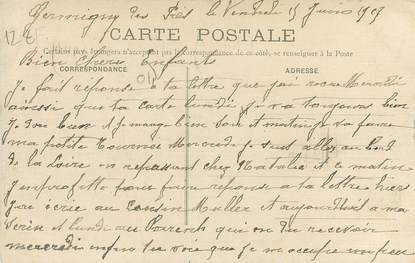 Germigny des Prés le Vendredi 15 Juin 1917
12 E
CARTE POSTALE
Certains pays étrangers n'acceptent pas la correspondance de ce côté, se renseigner à la Poste
Bien Chers Enfants
CORRESPONDANCE
ADRESSE
Je fait reponse a ta lettre que j'ai recue Mercredi
ainssi que ta carte lundi je va toujours bien
je dors bien et je mange bien soir et matin je va faire
ma petite tournée Mercredi je suis allez au bord
de la Loire en repassant chez Natalie et ce matin
j'en profitte pour faire reponse a ta lettre hier
j'ai écrie au cousin Muller et aujourd'hui a ma
et lundi au Parent qui on du recevoir
mercredi enfin tu vois que je m'occupe un peu